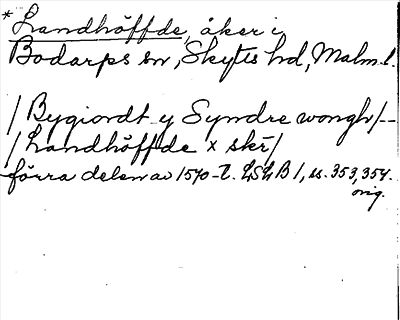 *Landhöffde, åker i
Bodarps sn, Skytts hd, Malm.l.
/Bygiordt y Syndre wongh/--
/Landhöffde x skr/
förra delen av 1570-t. LSLB 1, ss. 353, 354.
orig.